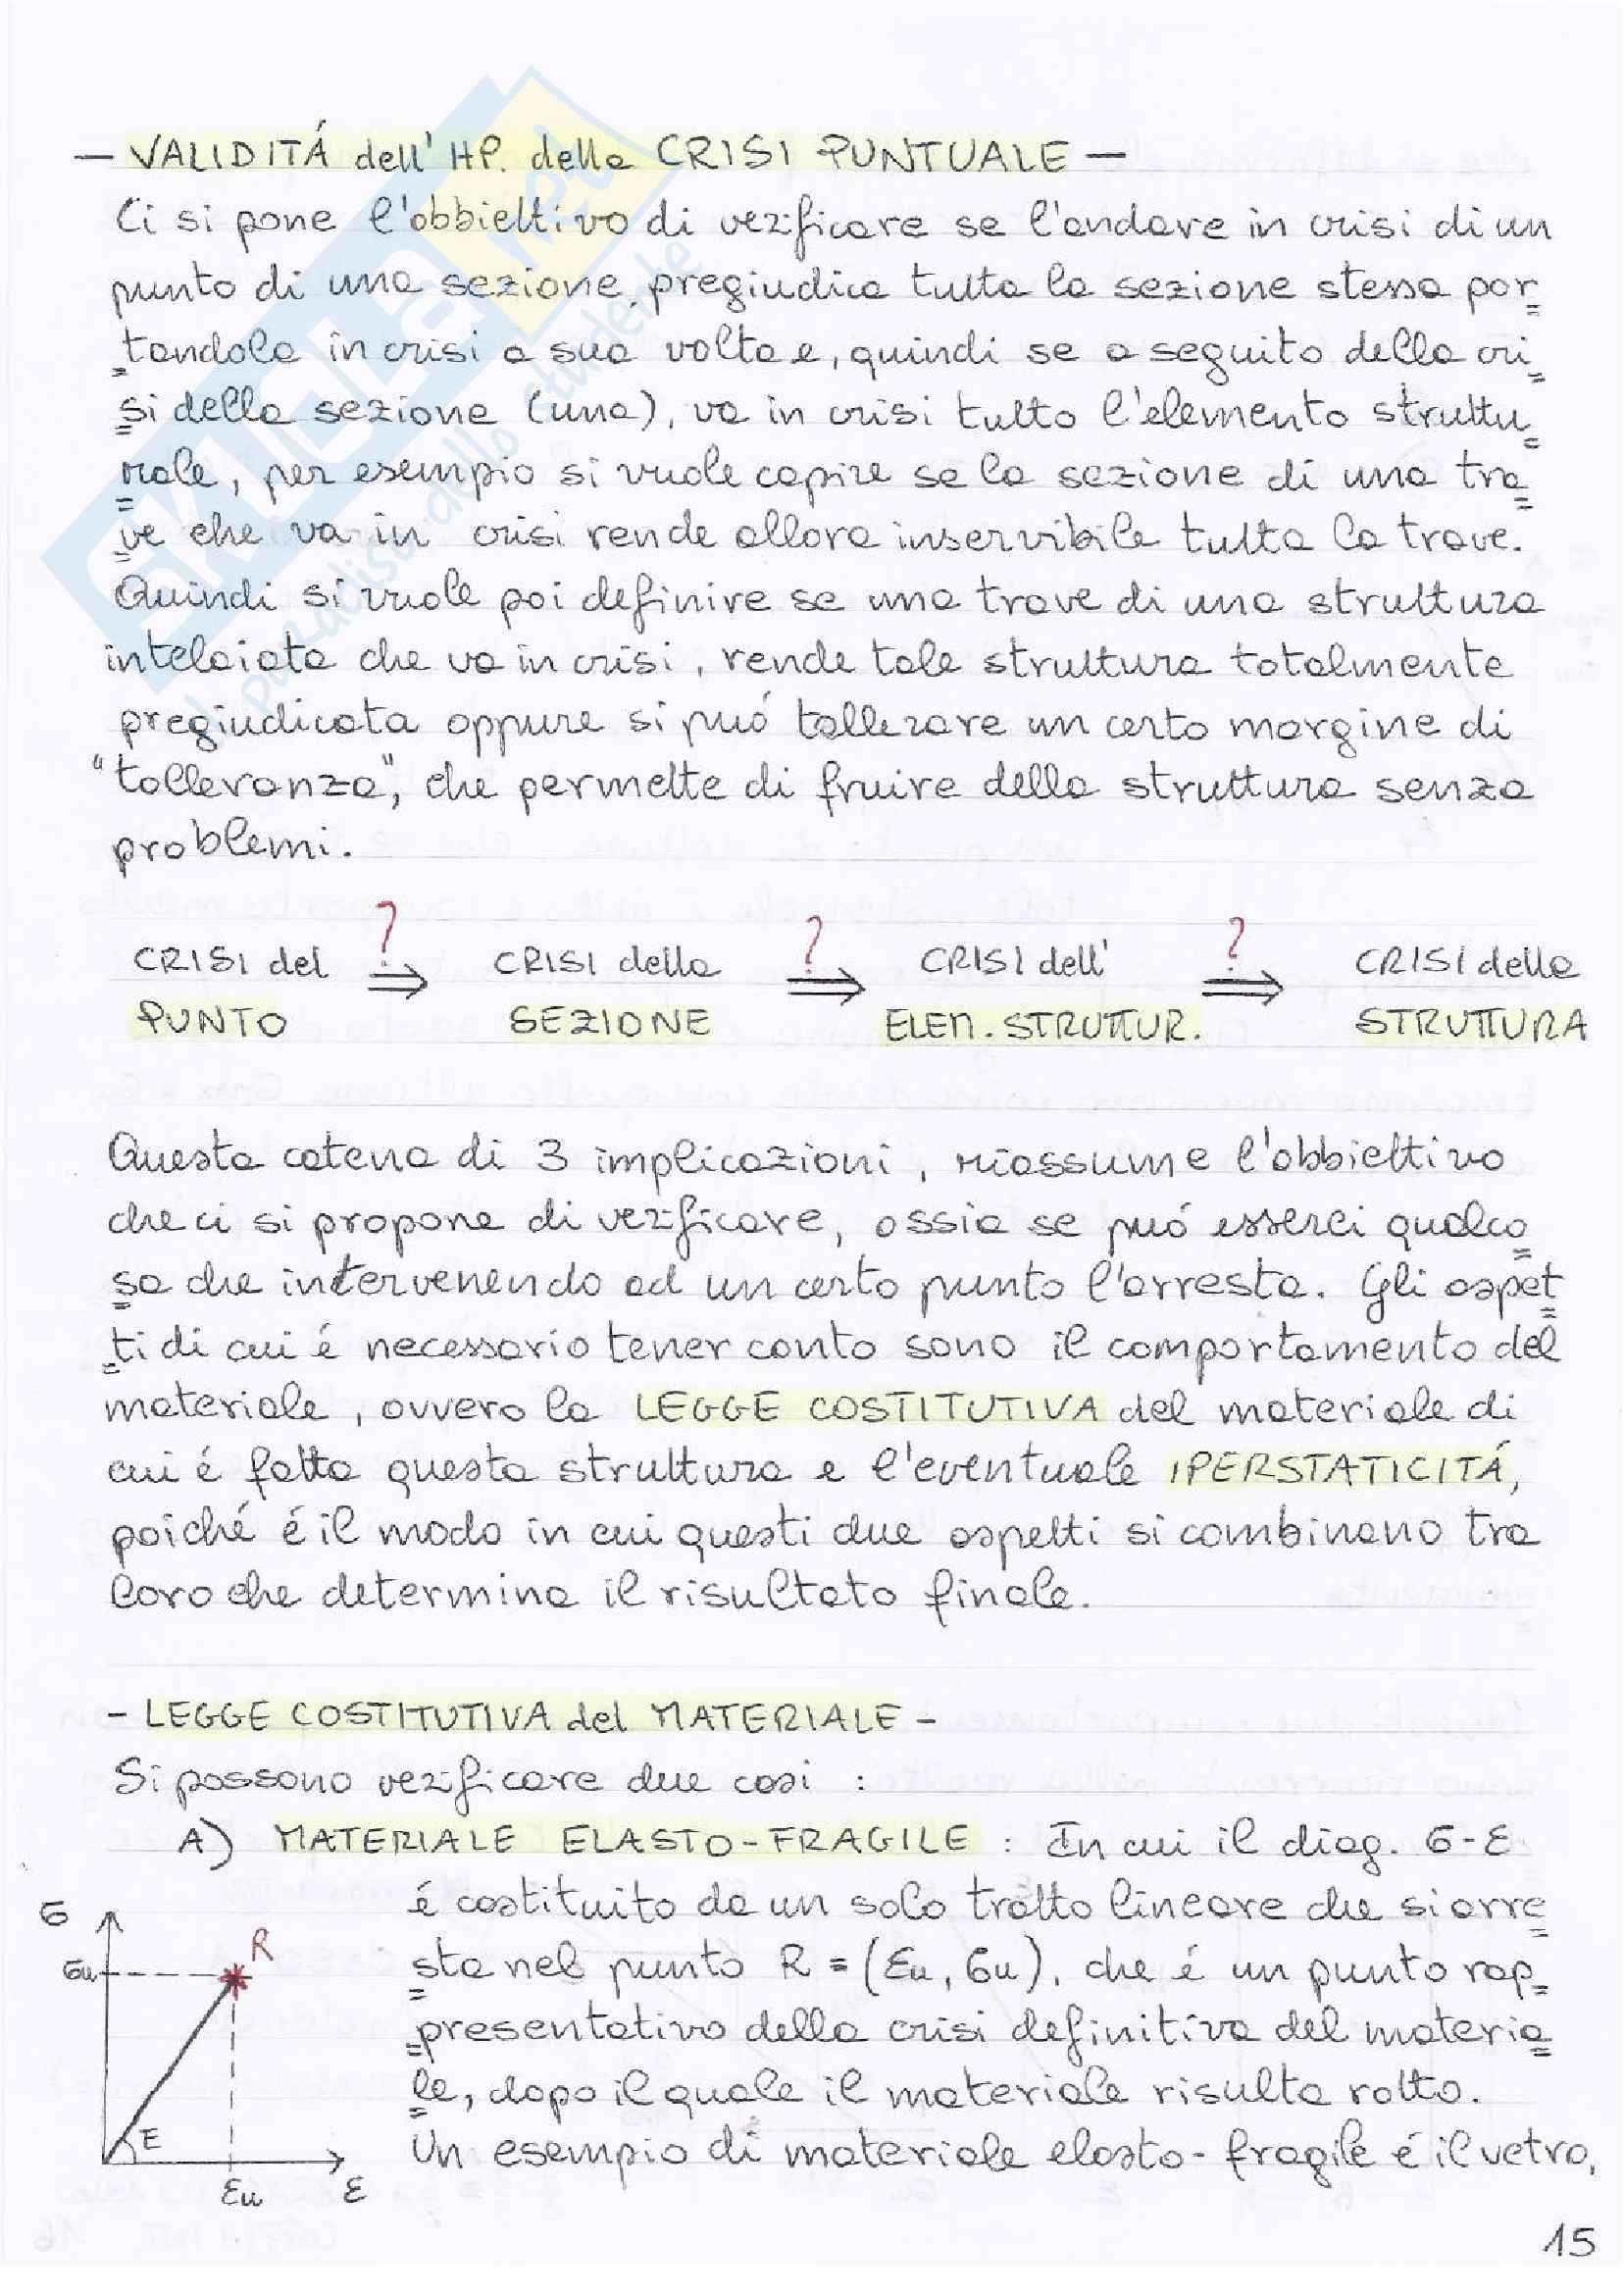 — VALIDITÁ dell' HP. della CRISI PUNTUALE —
Ci si pone l'obbiettivo di verificare se l'andare in crisi di un
punto di una sezione, pregiudica tutta la sezione stessa por=
=tandola in crisi a sua volta e, quindi se a seguito della cri=
=si della sezione (una), va in crisi tutto l'elemento struttu=
=rale, per esempio si vuole capire se la sezione di una tra=
=ve che va in crisi rende allora inservibile tutta la trave.
Quindi si vuole poi definire se una trave di una struttura
intelaiata che va in crisi, rende tale struttura totalmente
pregiudicata oppure si puó tollerare un certo margine di
"tolleranza", che permette di fruire della struttura senza
problemi.
CRISI del ? ⇒ CRISI della ? ⇒ CRISI dell' ? ⇒ CRISI della
PUNTO SEZIONE ELEM. STRUTTUR. STRUTTURA
Questa catena di 3 implicazioni, riassume l'obbiettivo
che ci si propone di verificare, ossia se puó esserci qualco=
=sa che intervenendo ad un certo punto l'arresta. Gli aspet=
=ti di cui é necessario tener conto sono il comportamento del
materiale, ovvero la LEGGE COSTITUTIVA del materiale di
cui é fatta questa struttura e l'eventuale IPERSTATICITÁ,
poiché é il modo in cui questi due aspetti si combinano tra
loro che determina il risultato finale.
- LEGGE COSTITUTIVA del MATERIALE -
Si possono verificare due casi :
A) MATERIALE ELASTO-FRAGILE : In cui il diag. σ-ε
é costituito da un solo tratto lineare che si arre=
=sta nel punto R = (εu, σu), che é un punto rap=
=presentativo della crisi definitiva del materia=
=le, dopo il quale il materiale risulta rotto.
Un esempio di materiale elasto-fragile é il vetro,
σ
R
σu
E
εu ε
15
SKUOLA.net
il paradiso dello studente